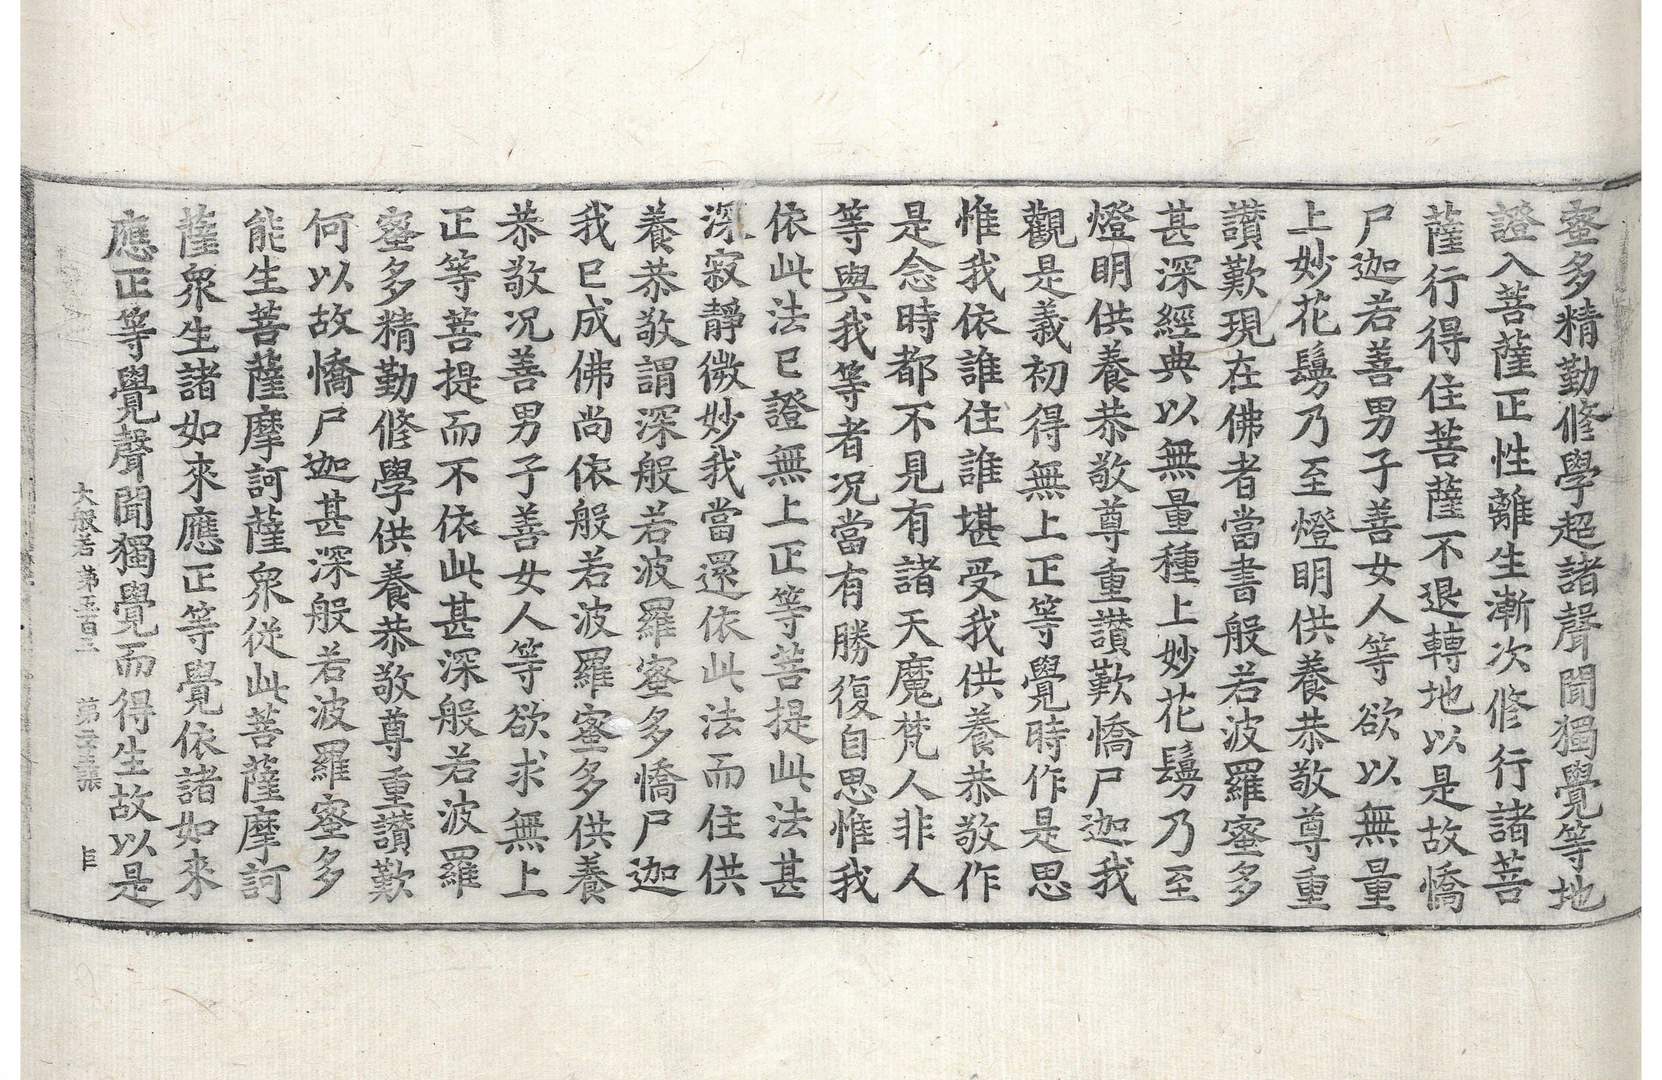 蜜多精勤修學超諸聲聞獨覺等地
證入菩薩正性離生漸次修行諸菩
薩行得住菩薩不退轉地以是故憍
尸迦若善男子善女人等欲以無量
上妙花鬘乃至燈明供養恭敬尊重
讚歎現在佛者當書般若波羅蜜多
甚深經典以無量種上妙花鬘乃至
燈明供養恭敬尊重讚歎憍尸迦我
觀是義初得無上正等覺時作是思
惟我依誰住誰堪受我供養恭敬作
是念時都不見有諸天魔梵人非人
等與我等者況當有勝復自思惟我
依此法已證無上正等菩提此法甚
深寂靜微妙我當還依此法而住供
養恭敬謂深般若波羅蜜多憍尸迦
我已成佛尚依般若波羅蜜多供養
恭敬況善男子善女人等欲求無上
正等菩提而不依此甚深般若波羅
蜜多精勤修學供養恭敬尊重讚歎
何以故憍尸迦甚深般若波羅蜜多
能生菩薩摩訶薩衆從此菩薩摩訶
薩衆生諸如來應正等覺依諸如來
應正等覺聲聞獨覺而得生故以是
大般若 第五百二 第二十三張